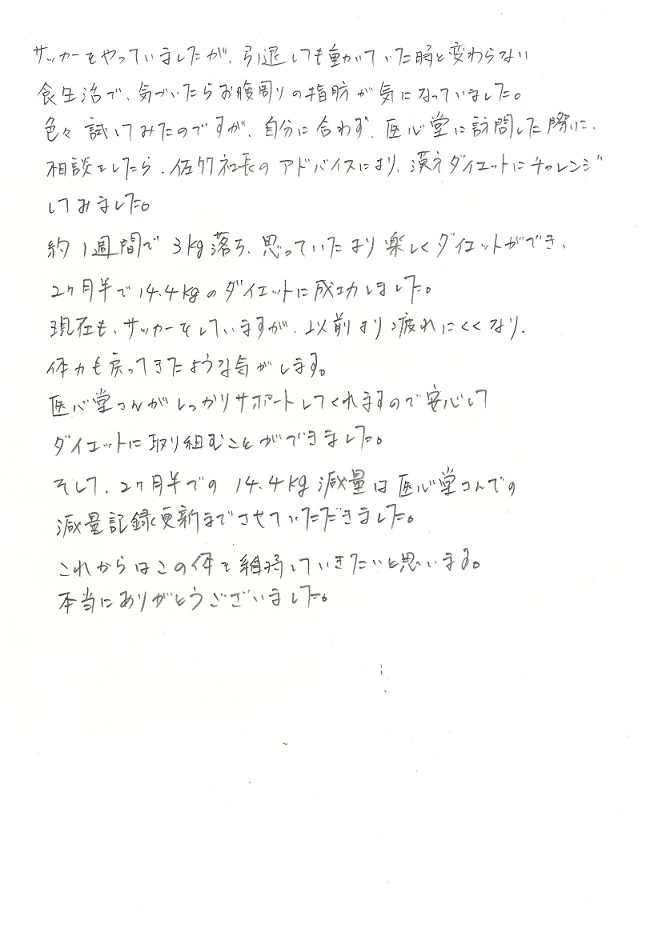 サッカーをやっていましたが、引退しても動いていた時と変わらない
食生活で、気づいたらお腹周りの脂肪が気になっていました。
色々試してみたのですが、自分に合わず、医心堂に訪問した際に、
相談をしたら、佐竹社長のアドバイスにより、漢方ダイエットにチャレンジ
してみました。
約1週間で3kg落ち、思っていたより楽しくダイエットができ、
2ヶ月半で14.4kgのダイエットに成功しました。
現在も、サッカーをしていますが、以前より疲れにくくなり、
体力も戻ってきたような気がします。
医心堂さんがしっかりサポートしてくれますので安心して
ダイエットに取り組むことができました。
そして、2ヶ月半での14.4kg減量は医心堂さんでの
減量記録更新までさせていただきました。
これからはこの体を維持していきたいと思います。
本当にありがとうございました。